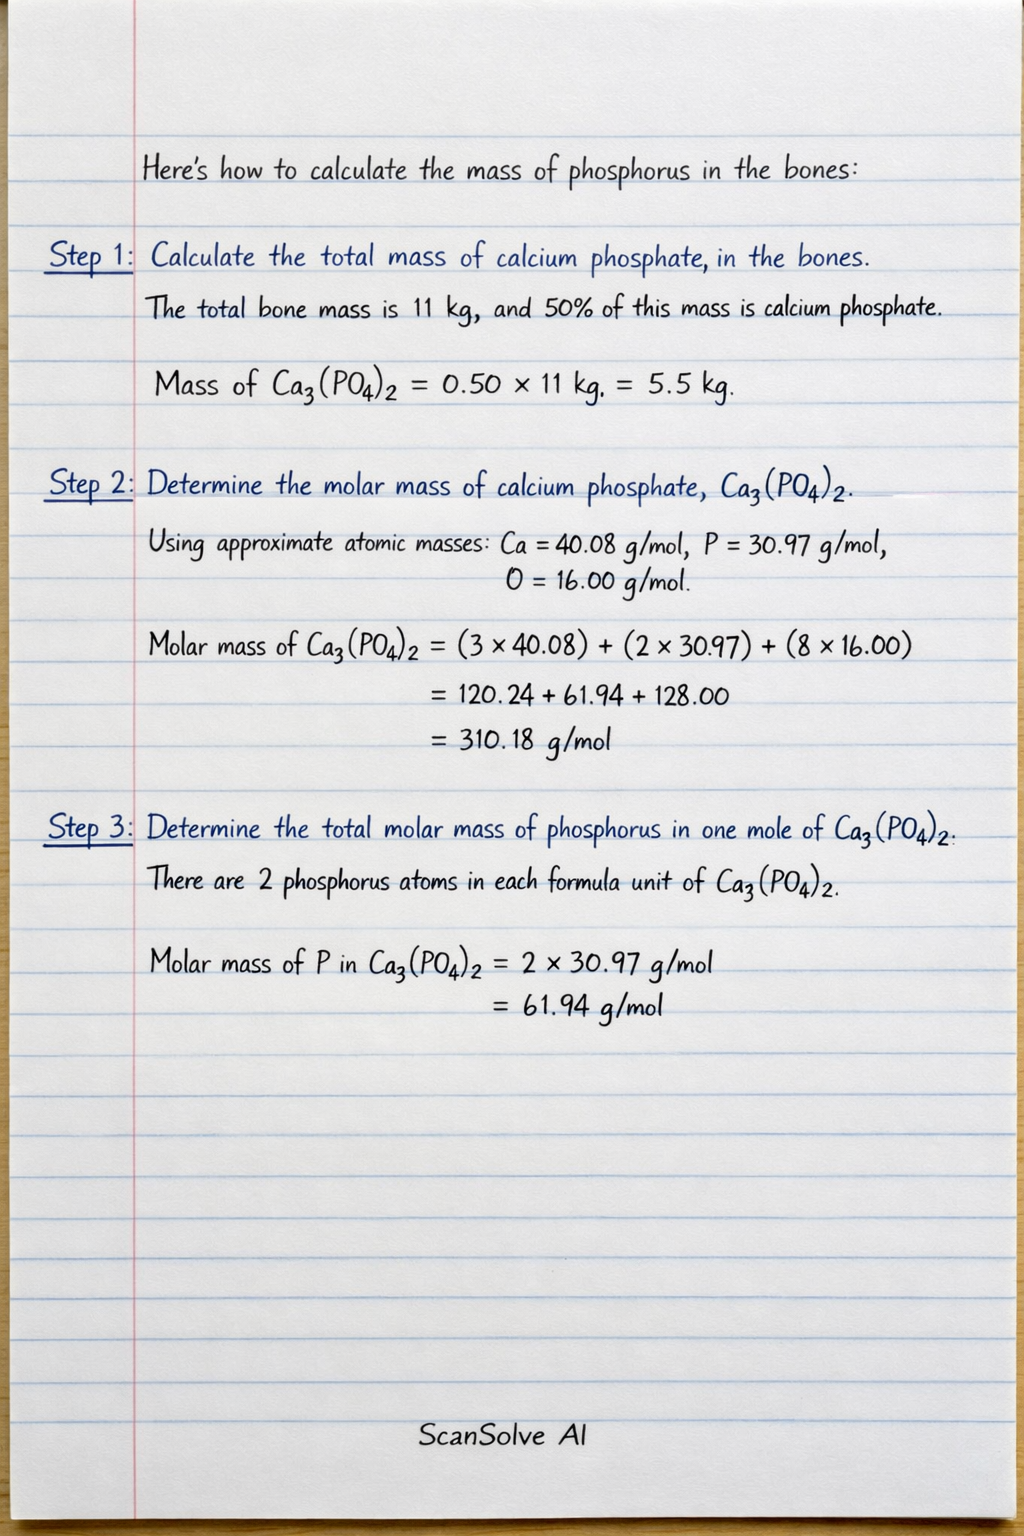 Here's how to calculate the mass of phosphorus in the bones:
Step 1: Calculate the total mass of calcium phosphate, in the bones.
The total bone mass is 11 kg, and 50% of this mass is calcium phosphate.
Mass of Ca₃(PO₄)₂ = 0.50 × 11 kg. = 5.5 kg.
Step 2: Determine the molar mass of calcium phosphate, Ca₃(PO₄)₂.
Using approximate atomic masses: Ca = 40.08 g/mol, P = 30.97 g/mol,
O = 16.00 g/mol.
Molar mass of Ca₃(PO₄)₂ = (3 × 40.08) + (2 × 30.97) + (8 × 16.00)
= 120.24 + 61.94 + 128.00
= 310.18 g/mol
Step 3: Determine the total molar mass of phosphorus in one mole of Ca₃(PO₄)₂.
There are 2 phosphorus atoms in each formula unit of Ca₃(PO₄)₂.
Molar mass of P in Ca₃(PO₄)₂ = 2 × 30.97 g/mol
= 61.94 g/mol
ScanSolve AI